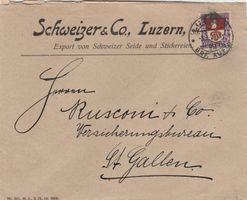 Schweizer & Co., Luzern,
Export von Schweizer Seide und Stickereien.
Herren
Rusconi & Co.
Versicherungsbureau
St. Gallen.